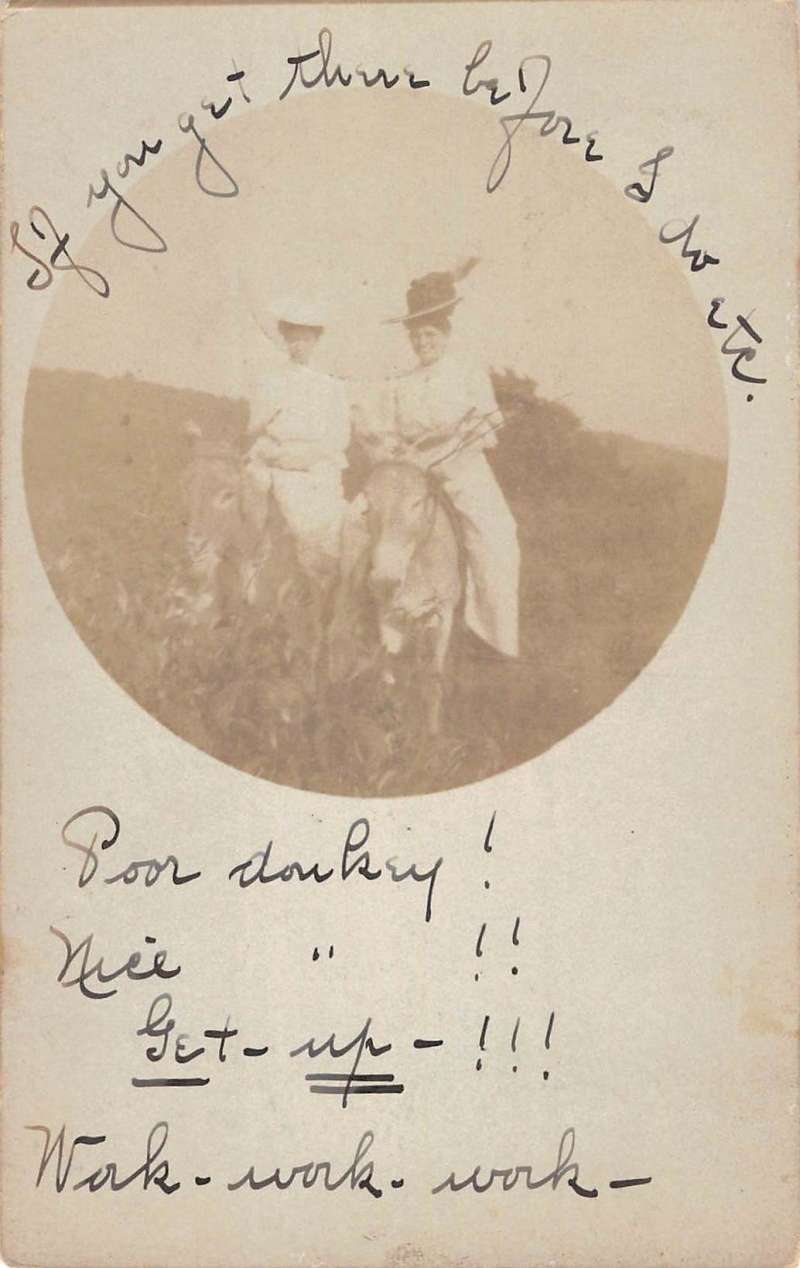 If you get there before I do etc.
Poor donkey !
Nice " !!
Get - up - !!!
Work - work - work -